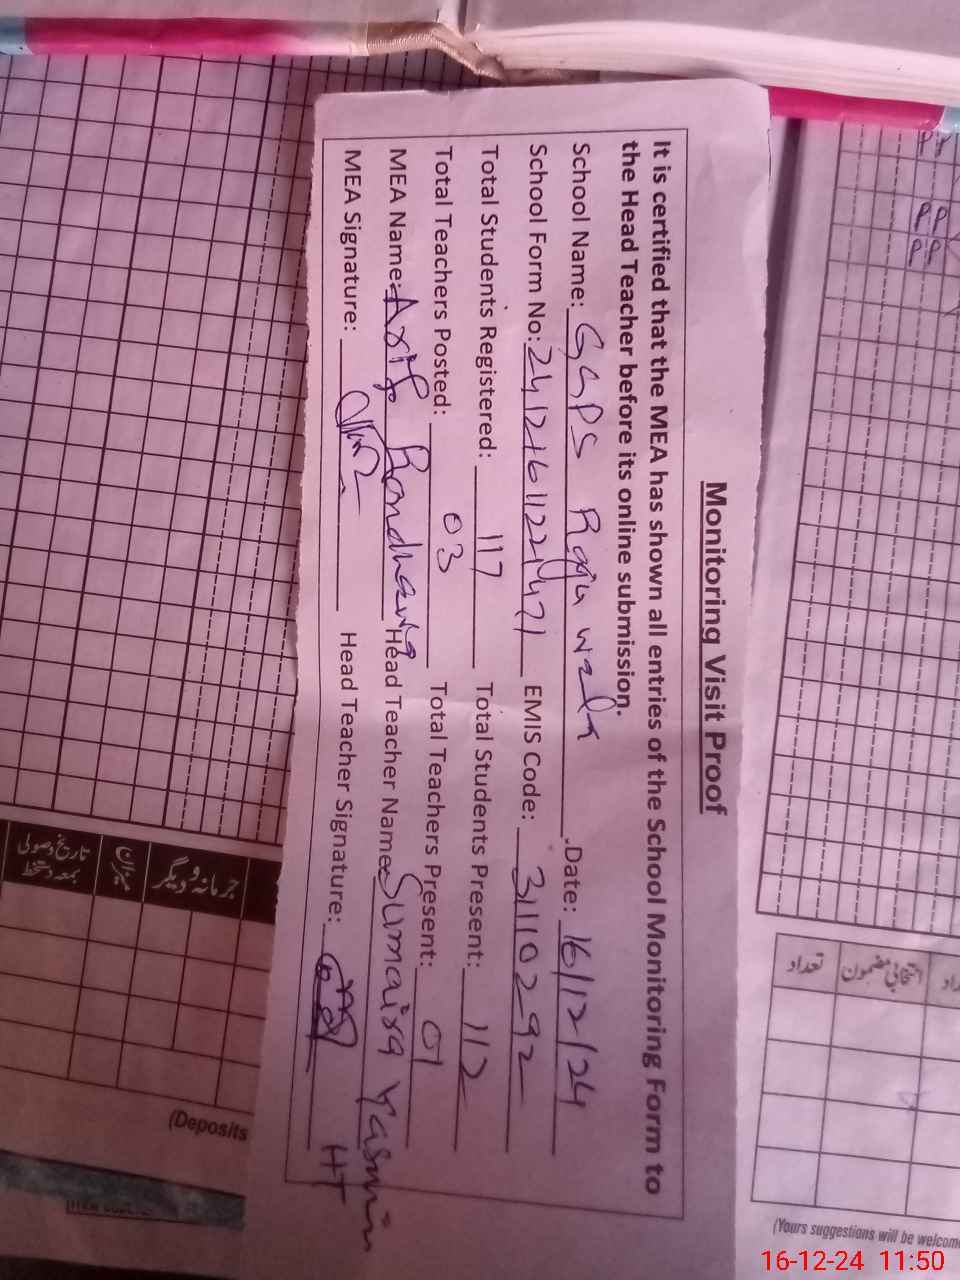 Monitoring Visit Proof
It is certified that the MEA has shown all entries of the School Monitoring Form to
the Head Teacher before its online submission.
School Name: GGPS Raju wala Date: 16/12/24
School Form No: 24121611221471 EMIS Code: 31110292
Total Students Registered: 117 Total Students Present: 112
Total Teachers Posted: 03 Total Teachers Present: 01
MEA Name: Asif Randhawa Head Teacher Name: Sumaira Yasmin
MEA Signature: Head Teacher Signature: HT
تاریخ وصولی
بمعہ دستخط
میزان
جرمانہ و دیگر
تعداد
انتخابی مضمون
(Deposits
(Yours suggestions will be welcome
16-12-24 11:50